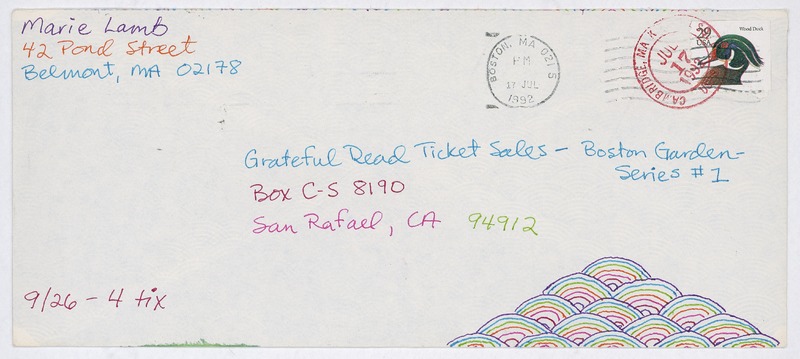 Marie Lamb
42 Pond Street
Belmont, MA 02178
BOSTON, MA 021
PM
17 JUL
1992
CAMBRIDGE, MA
JUL
17
1992
Wood Duck
29
Grateful Dead Ticket Sales – Boston Garden –
Series #1
Box C-S 8190
San Rafael, CA 94912
9/26 – 4 tix